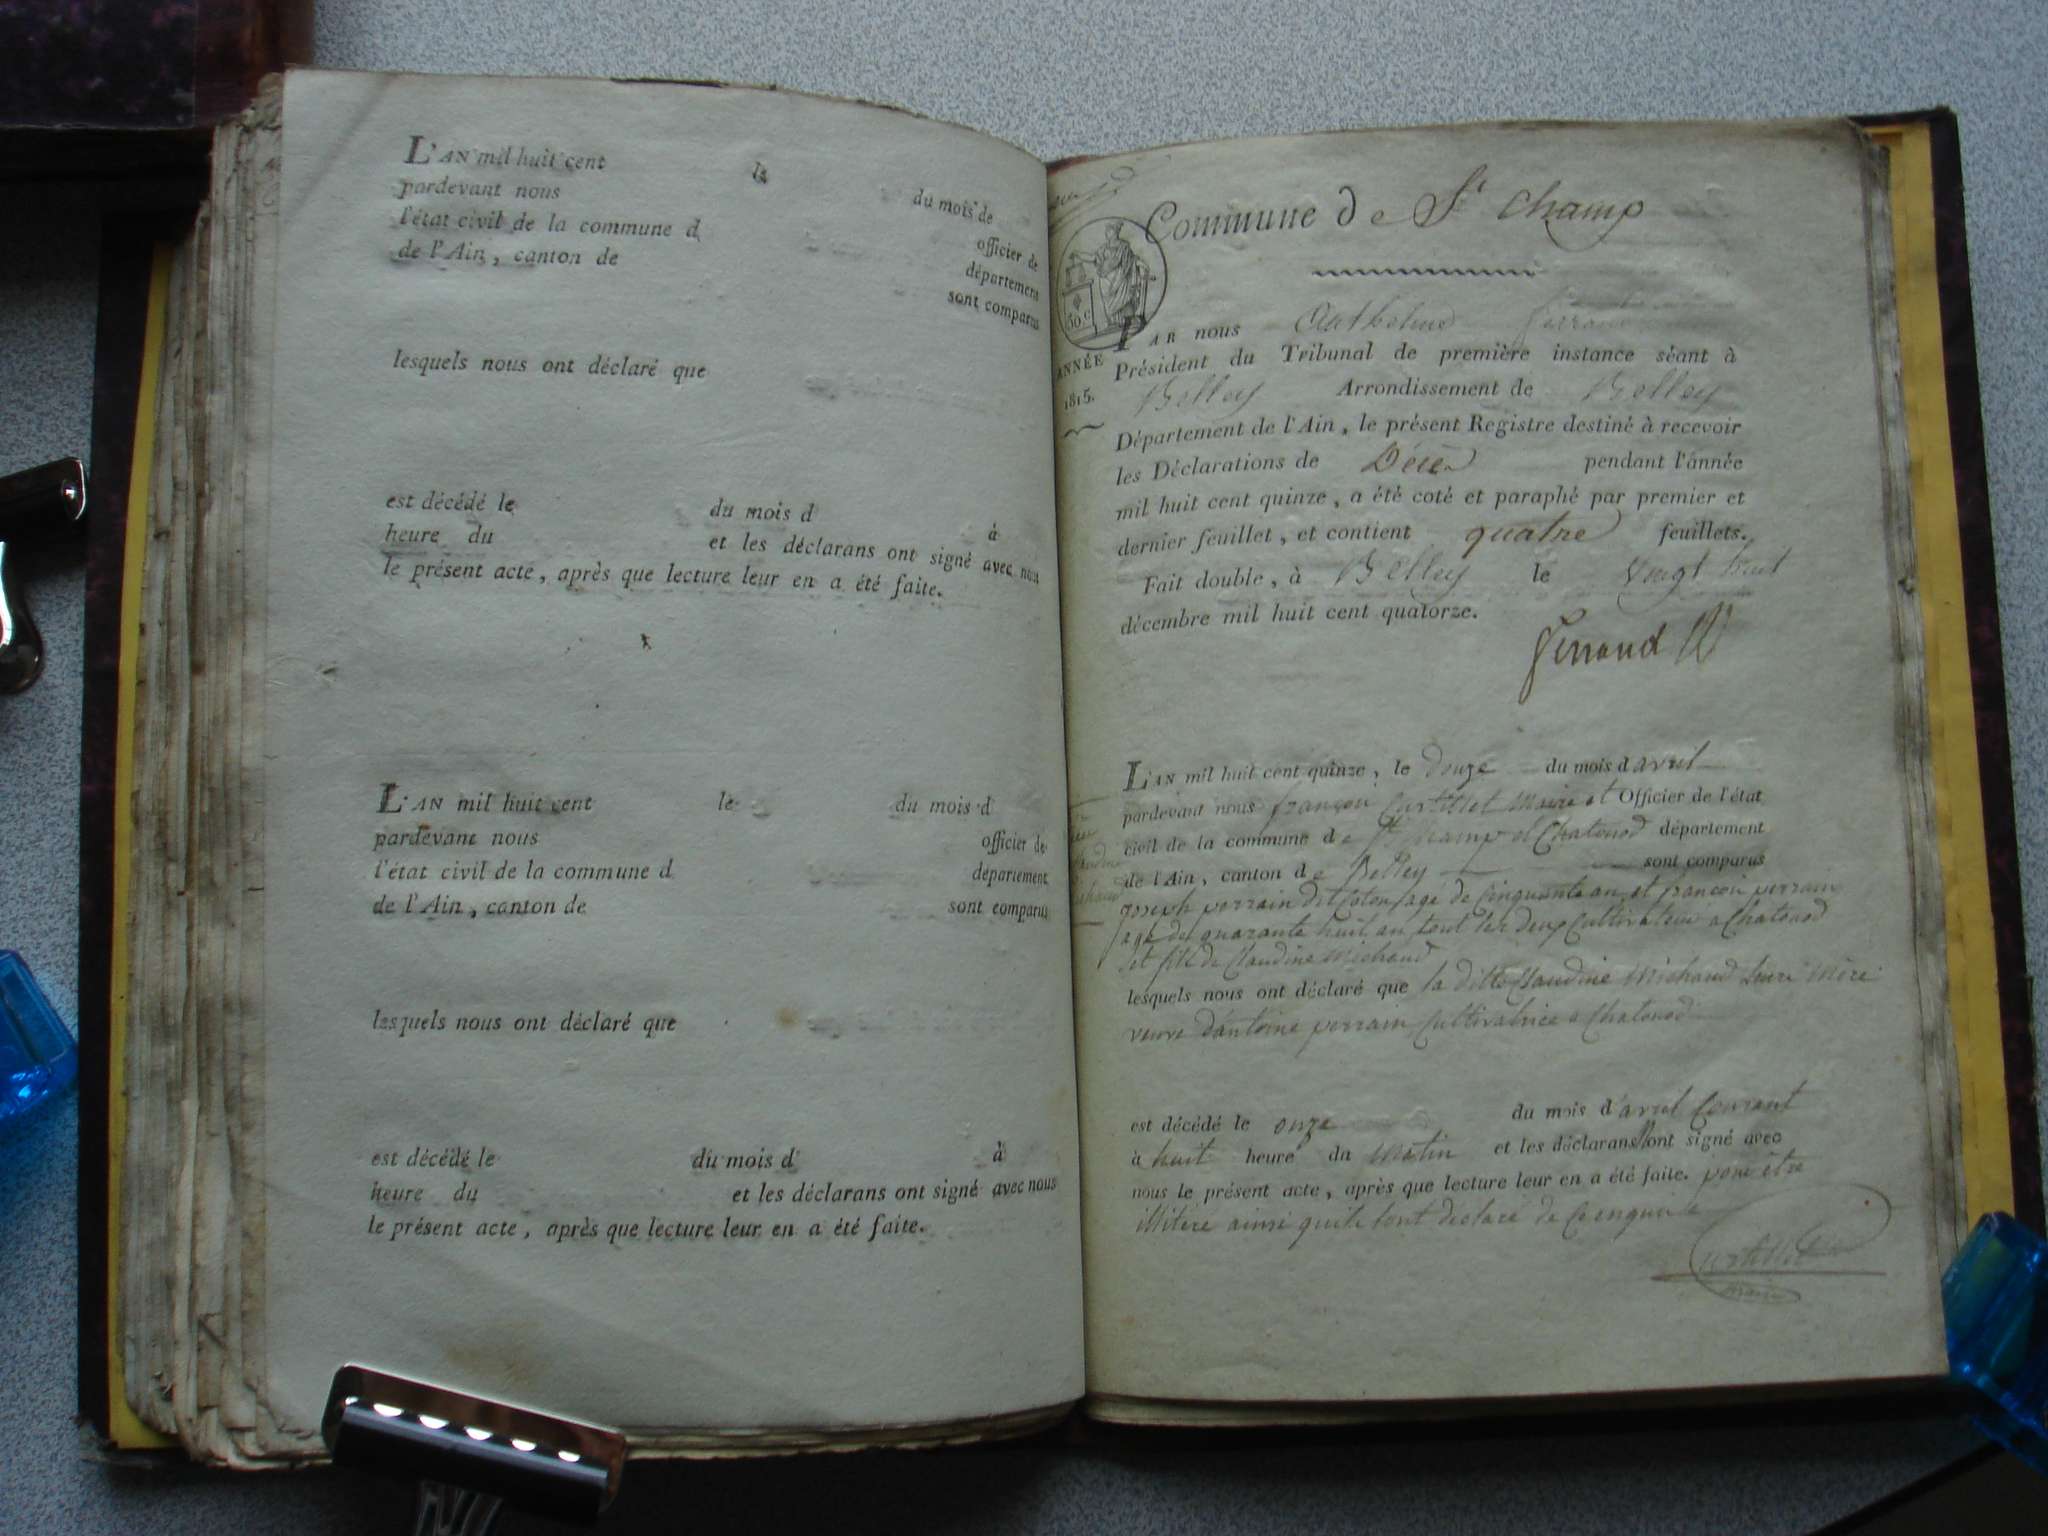 L'AN mil huit cent le du mois de
pardevant nous officier de
l'état civil de la commune d département
de l'Ain, canton de sont comparus
lesquels nous ont déclaré que
est décédé le du mois d à
heure du et les déclarans ont signé avec nous
le présent acte, après que lecture leur en a été faite.
L'AN mil huit cent le du mois d
pardevant nous officier de
l'état civil de la commune d département
de l'Ain, canton de sont comparus
lesquels nous ont déclaré que
est décédé le du mois d à
heure du et les déclarans ont signé avec nous
le présent acte, après que lecture leur en a été faite.
Commune de St champ
50 c
ANNÉE
1815.
PAR nous Anthelme ferrand
Président du Tribunal de première instance séant à
Belley Arrondissement de Belley
Département de l'Ain, le présent Registre destiné à recevoir
les Déclarations de Décès pendant l'année
mil huit cent quinze, a été coté et paraphé par premier et
dernier feuillet, et contient quatre feuillets.
Fait double, à Belley le vingt huit
décembre mil huit cent quatorze.
ferrand
L'AN mil huit cent quinze, le douze du mois d avril
pardevant nous françoi Curtillet Maire et Officier de l'état
civil de la commune de St Champ et Chatonod département
de l'Ain, canton de Belley sont comparus
joseph perrain dit Coton agé de Cinquante an et françoi perrain
agé de quarante huit an tout les deux Cultivateur a Chatonod
et fils de Claudine Michaud
lesquels nous ont déclaré que la ditte Claudine Michaud leur Mère
veuve d'antoine perrain Cultivatrice a Chatonod
est décédé le onze du mois d'avril Courant
à huit heure du Matin et les déclarans n'ont signé avec
nous le présent acte, après que lecture leur en a été faite. pour être
illitéré ainsi qu'ils l'ont declaré de ce enquis
Curtillet
maire